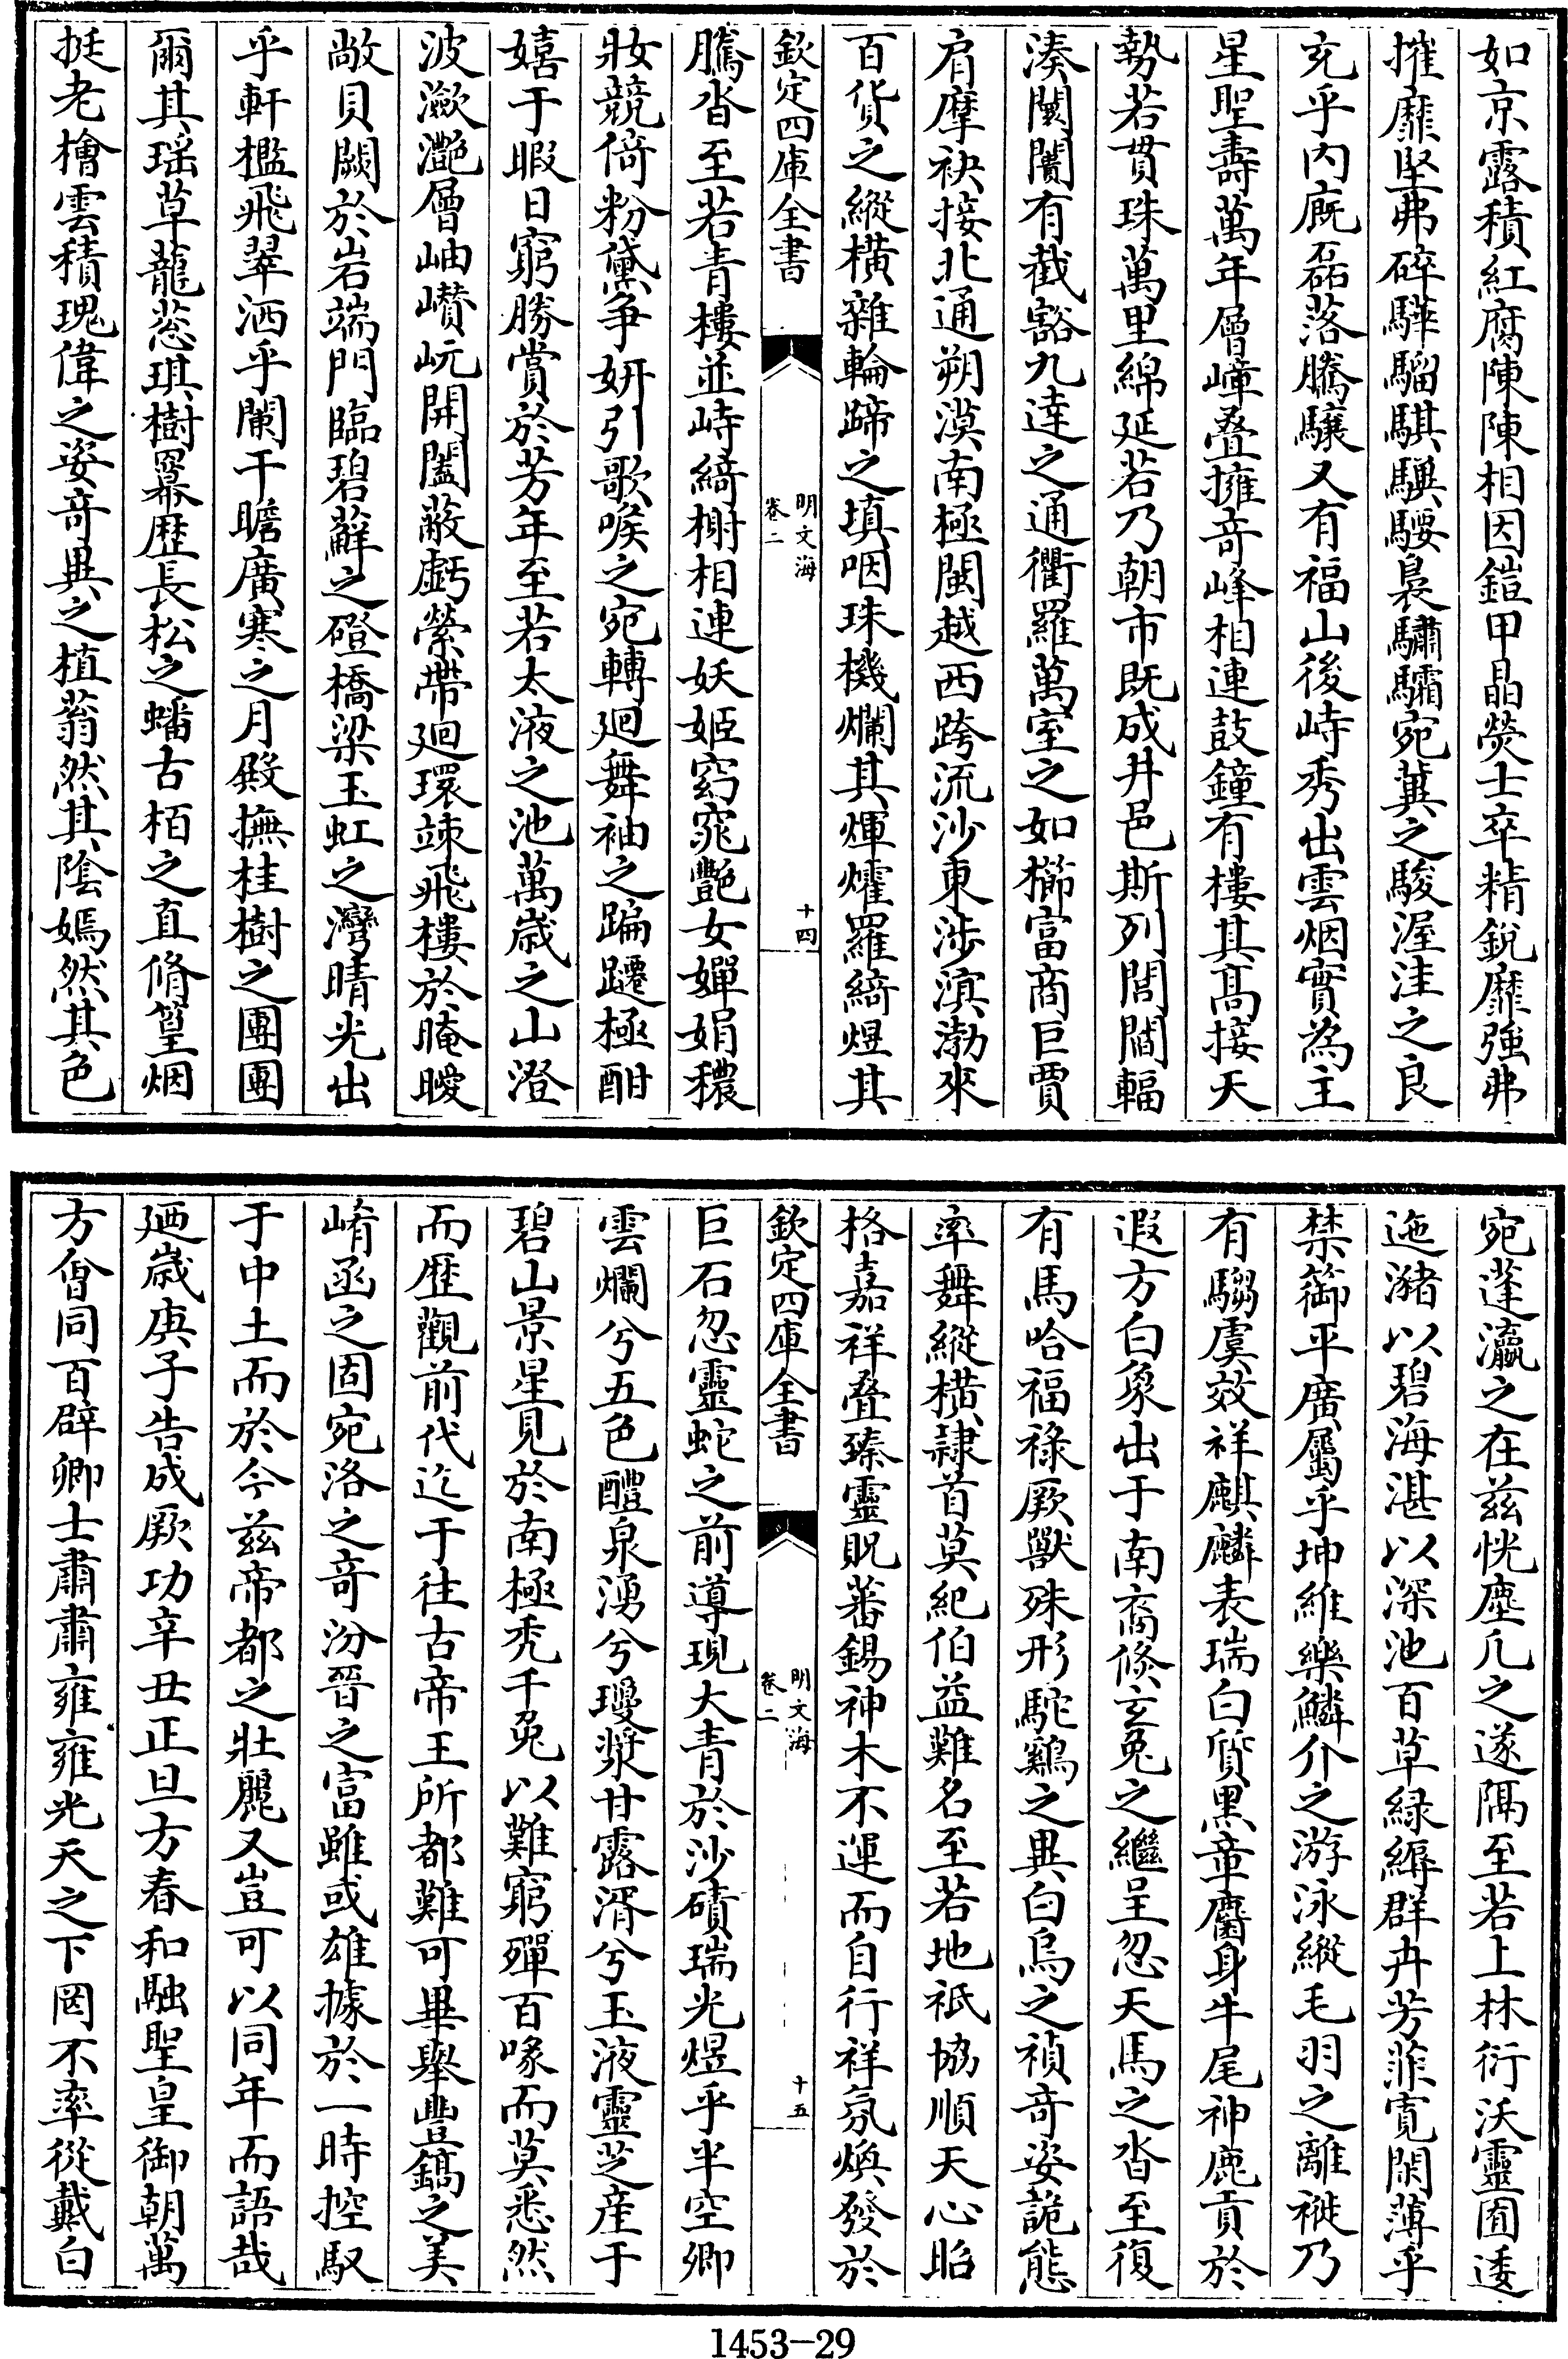 如京露積紅腐陳陳相因鎧甲晶熒士卒精銳靡強弗
摧靡堅弗碎驊騮騏驥騕褭驌驦宛冀之駿渥洼之良
充乎内廐磊落騰驤又有福山後峙秀出雲烟實為主
星聖壽萬年層嶂叠擁竒峰相連鼓鐘有樓其髙接天
勢若貫珠萬里綿延若乃朝市既成井邑斯列閭閻輻
湊闤闠有截豁九逵之通衢羅萬室之如櫛富商巨賈
肩摩袂接北通朔漠南極閩越西跨流沙東渉滇渤來
百貨之縱横雜輪蹄之填咽珠機爛其煇燿羅綺煜其
欽定四庫全書
明文海
卷二
十四
騰沓至若青樓並峙綺榭相連妖姬窈窕艷女嬋娟穠
妝競倚粉黛争妍引歌喉之宛轉廻舞袖之蹁躚極酣
嬉于暇日窮勝賞於芳年至若太液之池萬歳之山澄
波瀲灩層岫巑岏開闔蔽虧縈帶廻環竦飛樓於晻曖
敞貝闕於岩端門臨碧蘚之磴橋梁玉虹之灣晴光出
乎軒檻飛翠洒乎闌干瞻廣寒之月殿撫桂樹之團團
爾其瑶草蘢葱琪樹羃歴長松之蟠古栢之直脩篁烟
挺老檜雲積瑰偉之姿竒異之植蓊然其陰嫣然其色
宛蓬瀛之在兹恍塵凡之遂隔至若上林衍沃靈囿逶
迤瀦以碧海湛以深池百草緑縟群卉芳菲寛閑薄乎
禁籞平廣屬乎坤維樂鱗介之游泳縱毛羽之離褷乃
有騶虞效祥麒麟表瑞白質黒章麕身牛尾神鹿貢於
遐方白象出于南裔倐玄兔之繼呈忽天馬之沓至復
有馬哈福祿厥獸殊形駝鷄之異白烏之禎竒姿詭態
率舞縱横隷首莫紀伯益難名至若地祇協順天心昭
格嘉祥叠臻靈貺蕃錫神木不運而自行祥氛煥發於
欽定四庫全書
明文海
卷二
十五
巨石忽靈蛇之前導現大青於沙磧瑞光煜乎半空卿
雲爛兮五色醴泉湧兮瓊漿甘露湑兮玉液靈芝産于
碧山景星見於南極秃千兔以難窮殫百喙而莫悉然
而歴觀前代迄于往古帝王所都難可畢舉豐鎬之美
崤函之固宛洛之竒汾晉之富雖或雄據於一時控馭
于中土而於今兹帝都之壯麗又豈可以同年而語哉
廼歳庚子告成厥功辛丑正旦方春和融聖皇御朝萬
方㑹同百辟卿士肅肅雍雍光天之下罔不率從戴白
1453-29